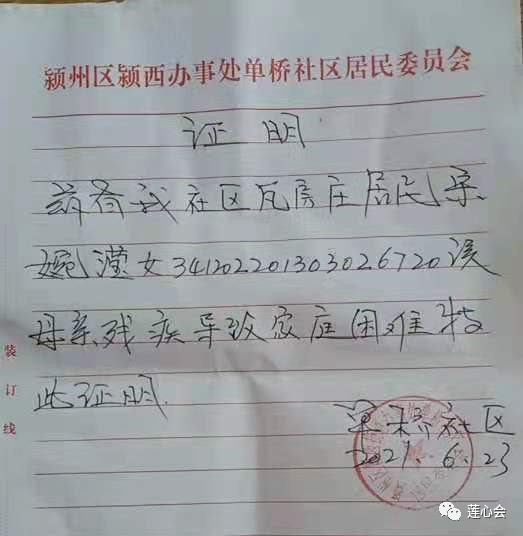 颍州区颍西办事处单桥社区居民委员会
证明
兹有我社区瓦房庄居民
婉滢女341202201303026720该
母亲残疾导致家庭困难特
此证明.
单桥社区
2021.6.23
装订线
莲心会